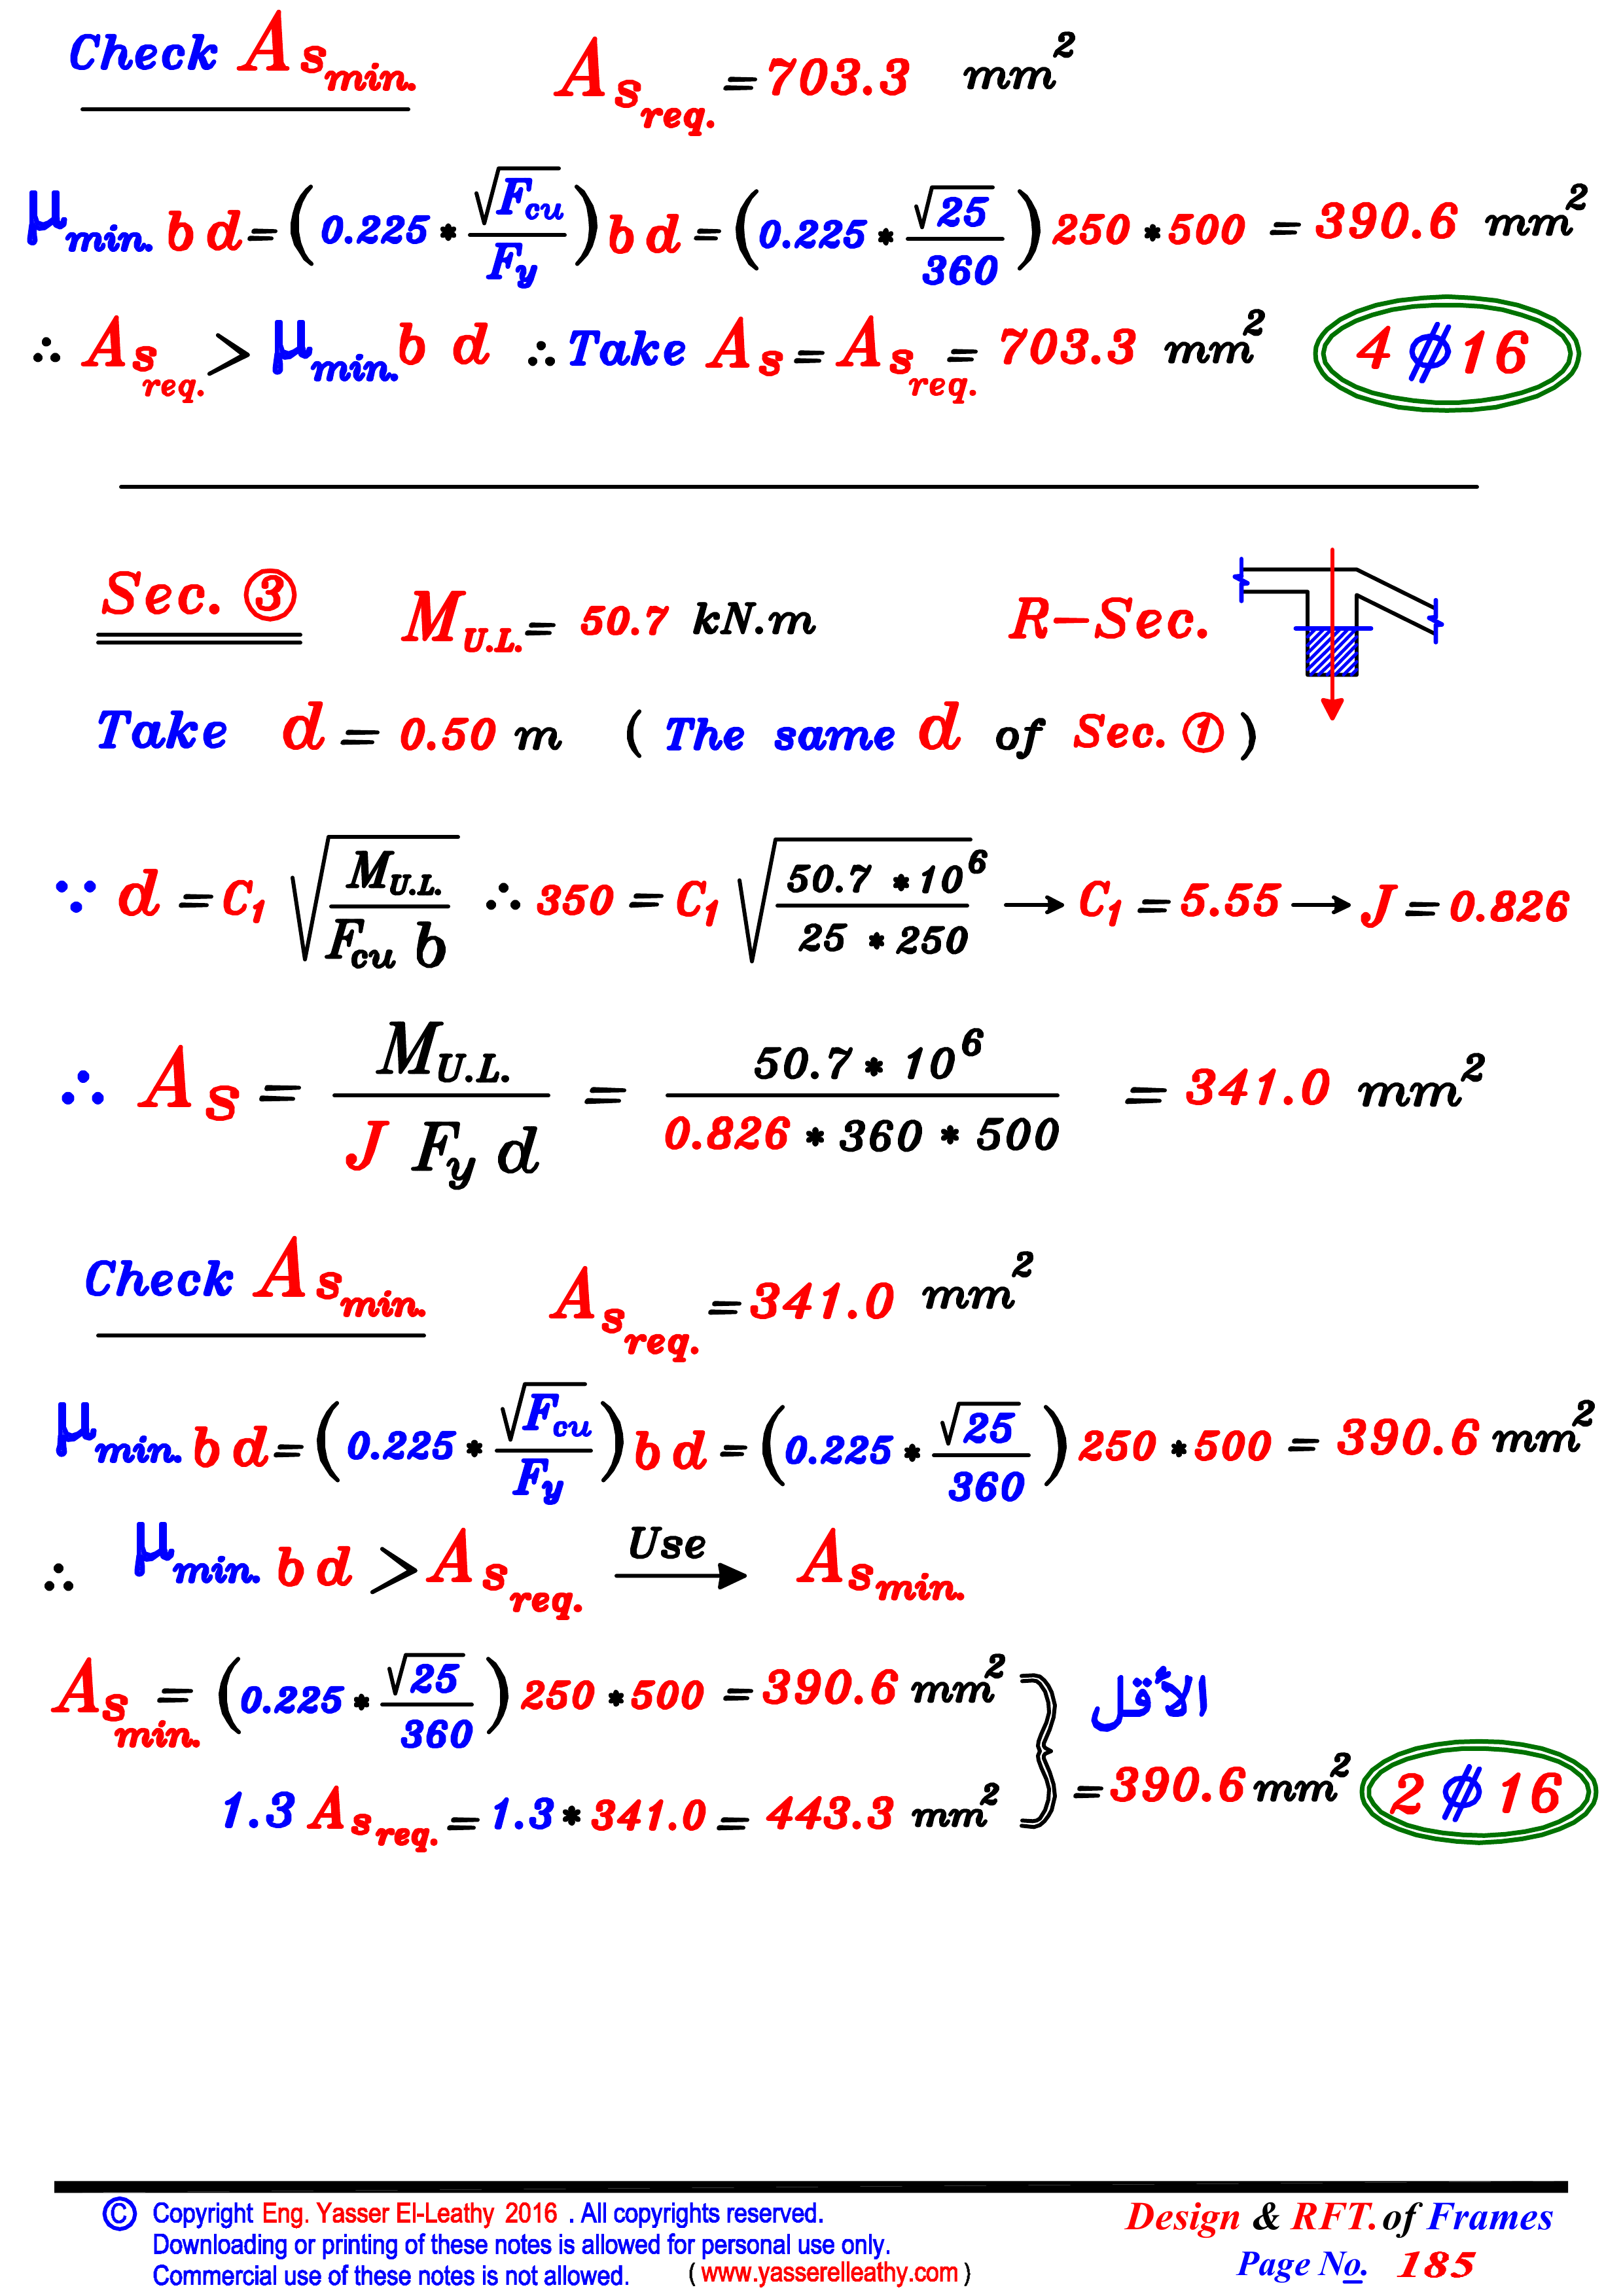 Check As min.   As req. = 703.3 mm²
μ min. b d = ( 0.225 * √Fcu / Fy ) b d = ( 0.225 * √25 / 360 ) 250 * 500 = 390.6 mm²
∴ As req. > μ min. b d ∴ Take As = As req. = 703.3 mm² 4 ⌀ 16
Sec. ③ M U.L. = 50.7 kN.m R-Sec.
Take d = 0.50 m ( The same d of Sec. ① )
∵ d = C1 √( M U.L. / Fcu b ) ∴ 350 = C1 √( 50.7 * 10⁶ / 25 * 250 ) → C1 = 5.55 → J = 0.826
∴ As = M U.L. / J Fy d = 50.7 * 10⁶ / 0.826 * 360 * 500 = 341.0 mm²
Check As min.   As req. = 341.0 mm²
μ min. b d = ( 0.225 * √Fcu / Fy ) b d = ( 0.225 * √25 / 360 ) 250 * 500 = 390.6 mm²
∴ μ min. b d > As req. Use → As min.
As min. = ( 0.225 * √25 / 360 ) 250 * 500 = 390.6 mm² } الأقل
1.3 As req. = 1.3 * 341.0 = 443.3 mm² = 390.6 mm² 2 ⌀ 16
© Copyright Eng. Yasser El-Leathy 2016 . All copyrights reserved.
Downloading or printing of these notes is allowed for personal use only.
Commercial use of these notes is not allowed. ( www.yasserelleathy.com )
Design & RFT. of Frames
Page No. 185